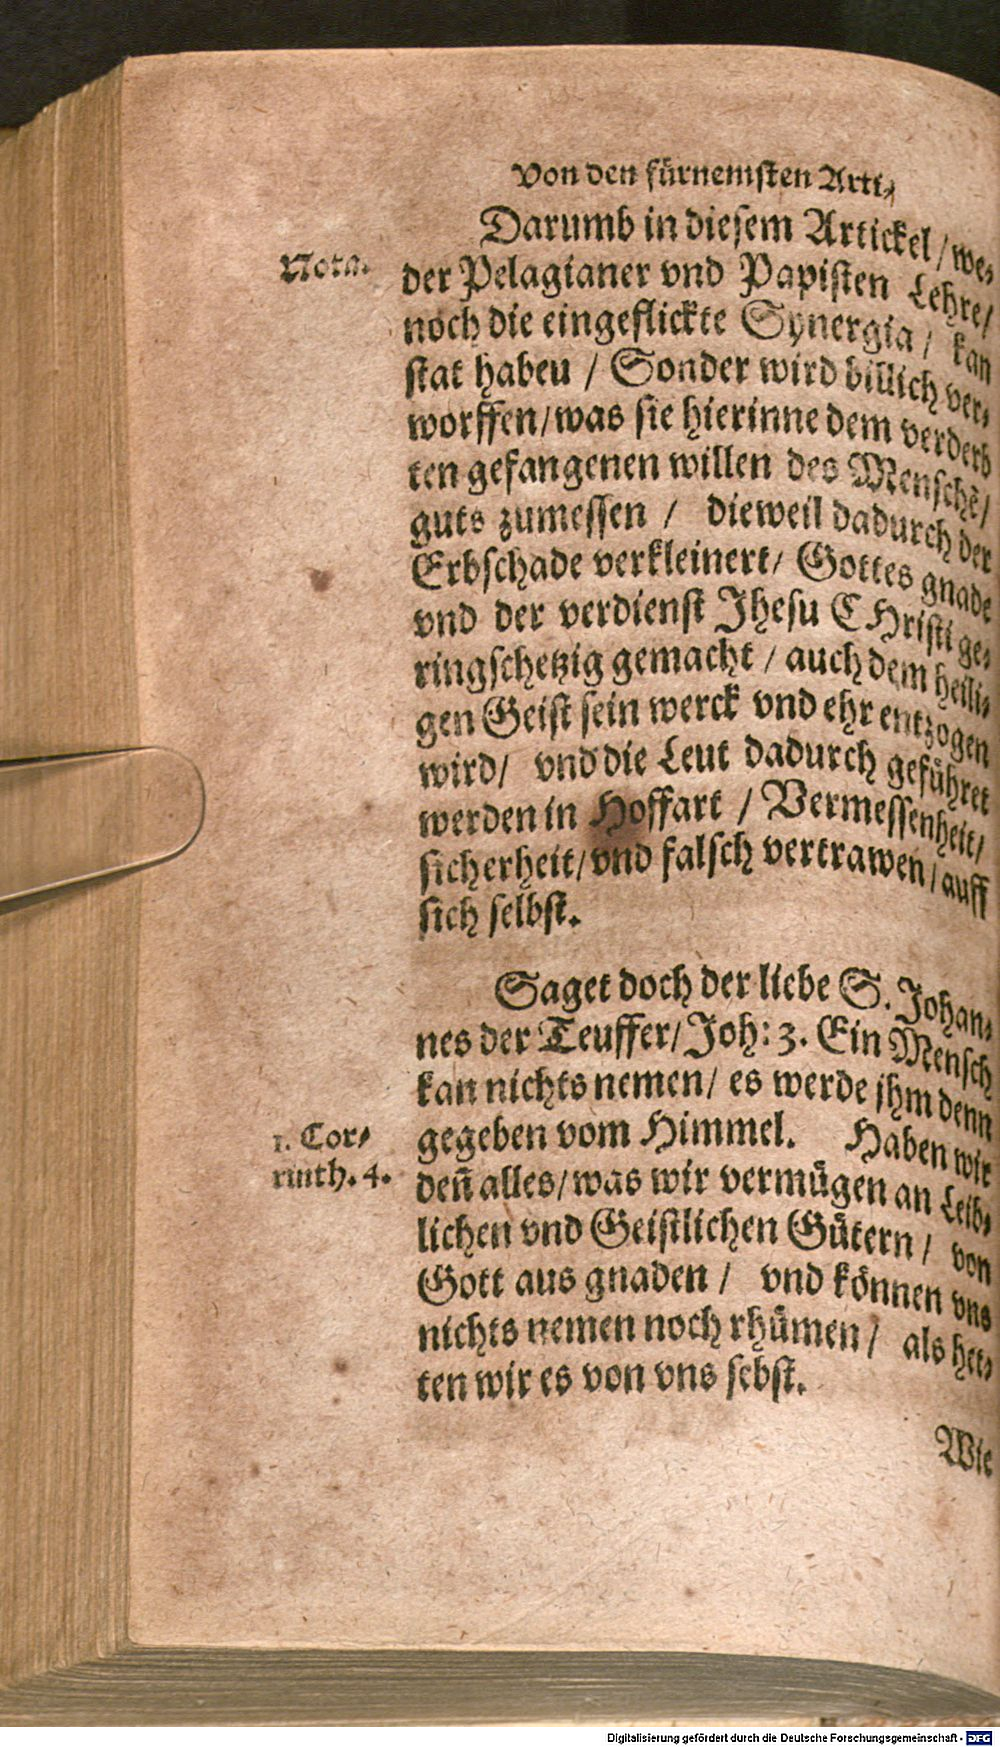 Von den fürnemsten Arti⸗
Darumb in diesem Artickel / we⸗
Nota.
der Pelagianer vnd Papisten Lehre /
noch die eingeflickte Synergia / kan
stat habeu / Sonder wird billich ver⸗
worffen / was sie hierinne dem verderb
ten gefangenen willen des Menschē /
guts zumessen / dieweil dadurch der
Erbschade verkleinert / Gottes gnade
vnd der verdienst Jhesu CHristi ge⸗
ringschetzig gemacht / auch dem heili⸗
gen Geist sein werck vnd ehr entzogen
wird / vnd die Leut dadurch geführet
werden in Hoffart / Vermessenheit /
sicherheit / vnd falsch vertrawen / auff
sich selbst.
Saget doch der liebe S. Johan⸗
nes der Teuffer / Joh: 3. Ein Mensch
kan nichts nemen / es werde jhm denn
1. Cor⸗
gegeben vom Himmel. Haben wir
rinth. 4.
deñ alles / was wir vermügen an Leib⸗
lichen vnd Geistlichen Gütern / von
Gott aus gnaden / vnd können vns
nichts nemen noch rhümen / als het⸗
ten wir es von vns sebst.
Wie
Digitalisierung gefördert durch die Deutsche Forschungsgemeinschaft - DFG